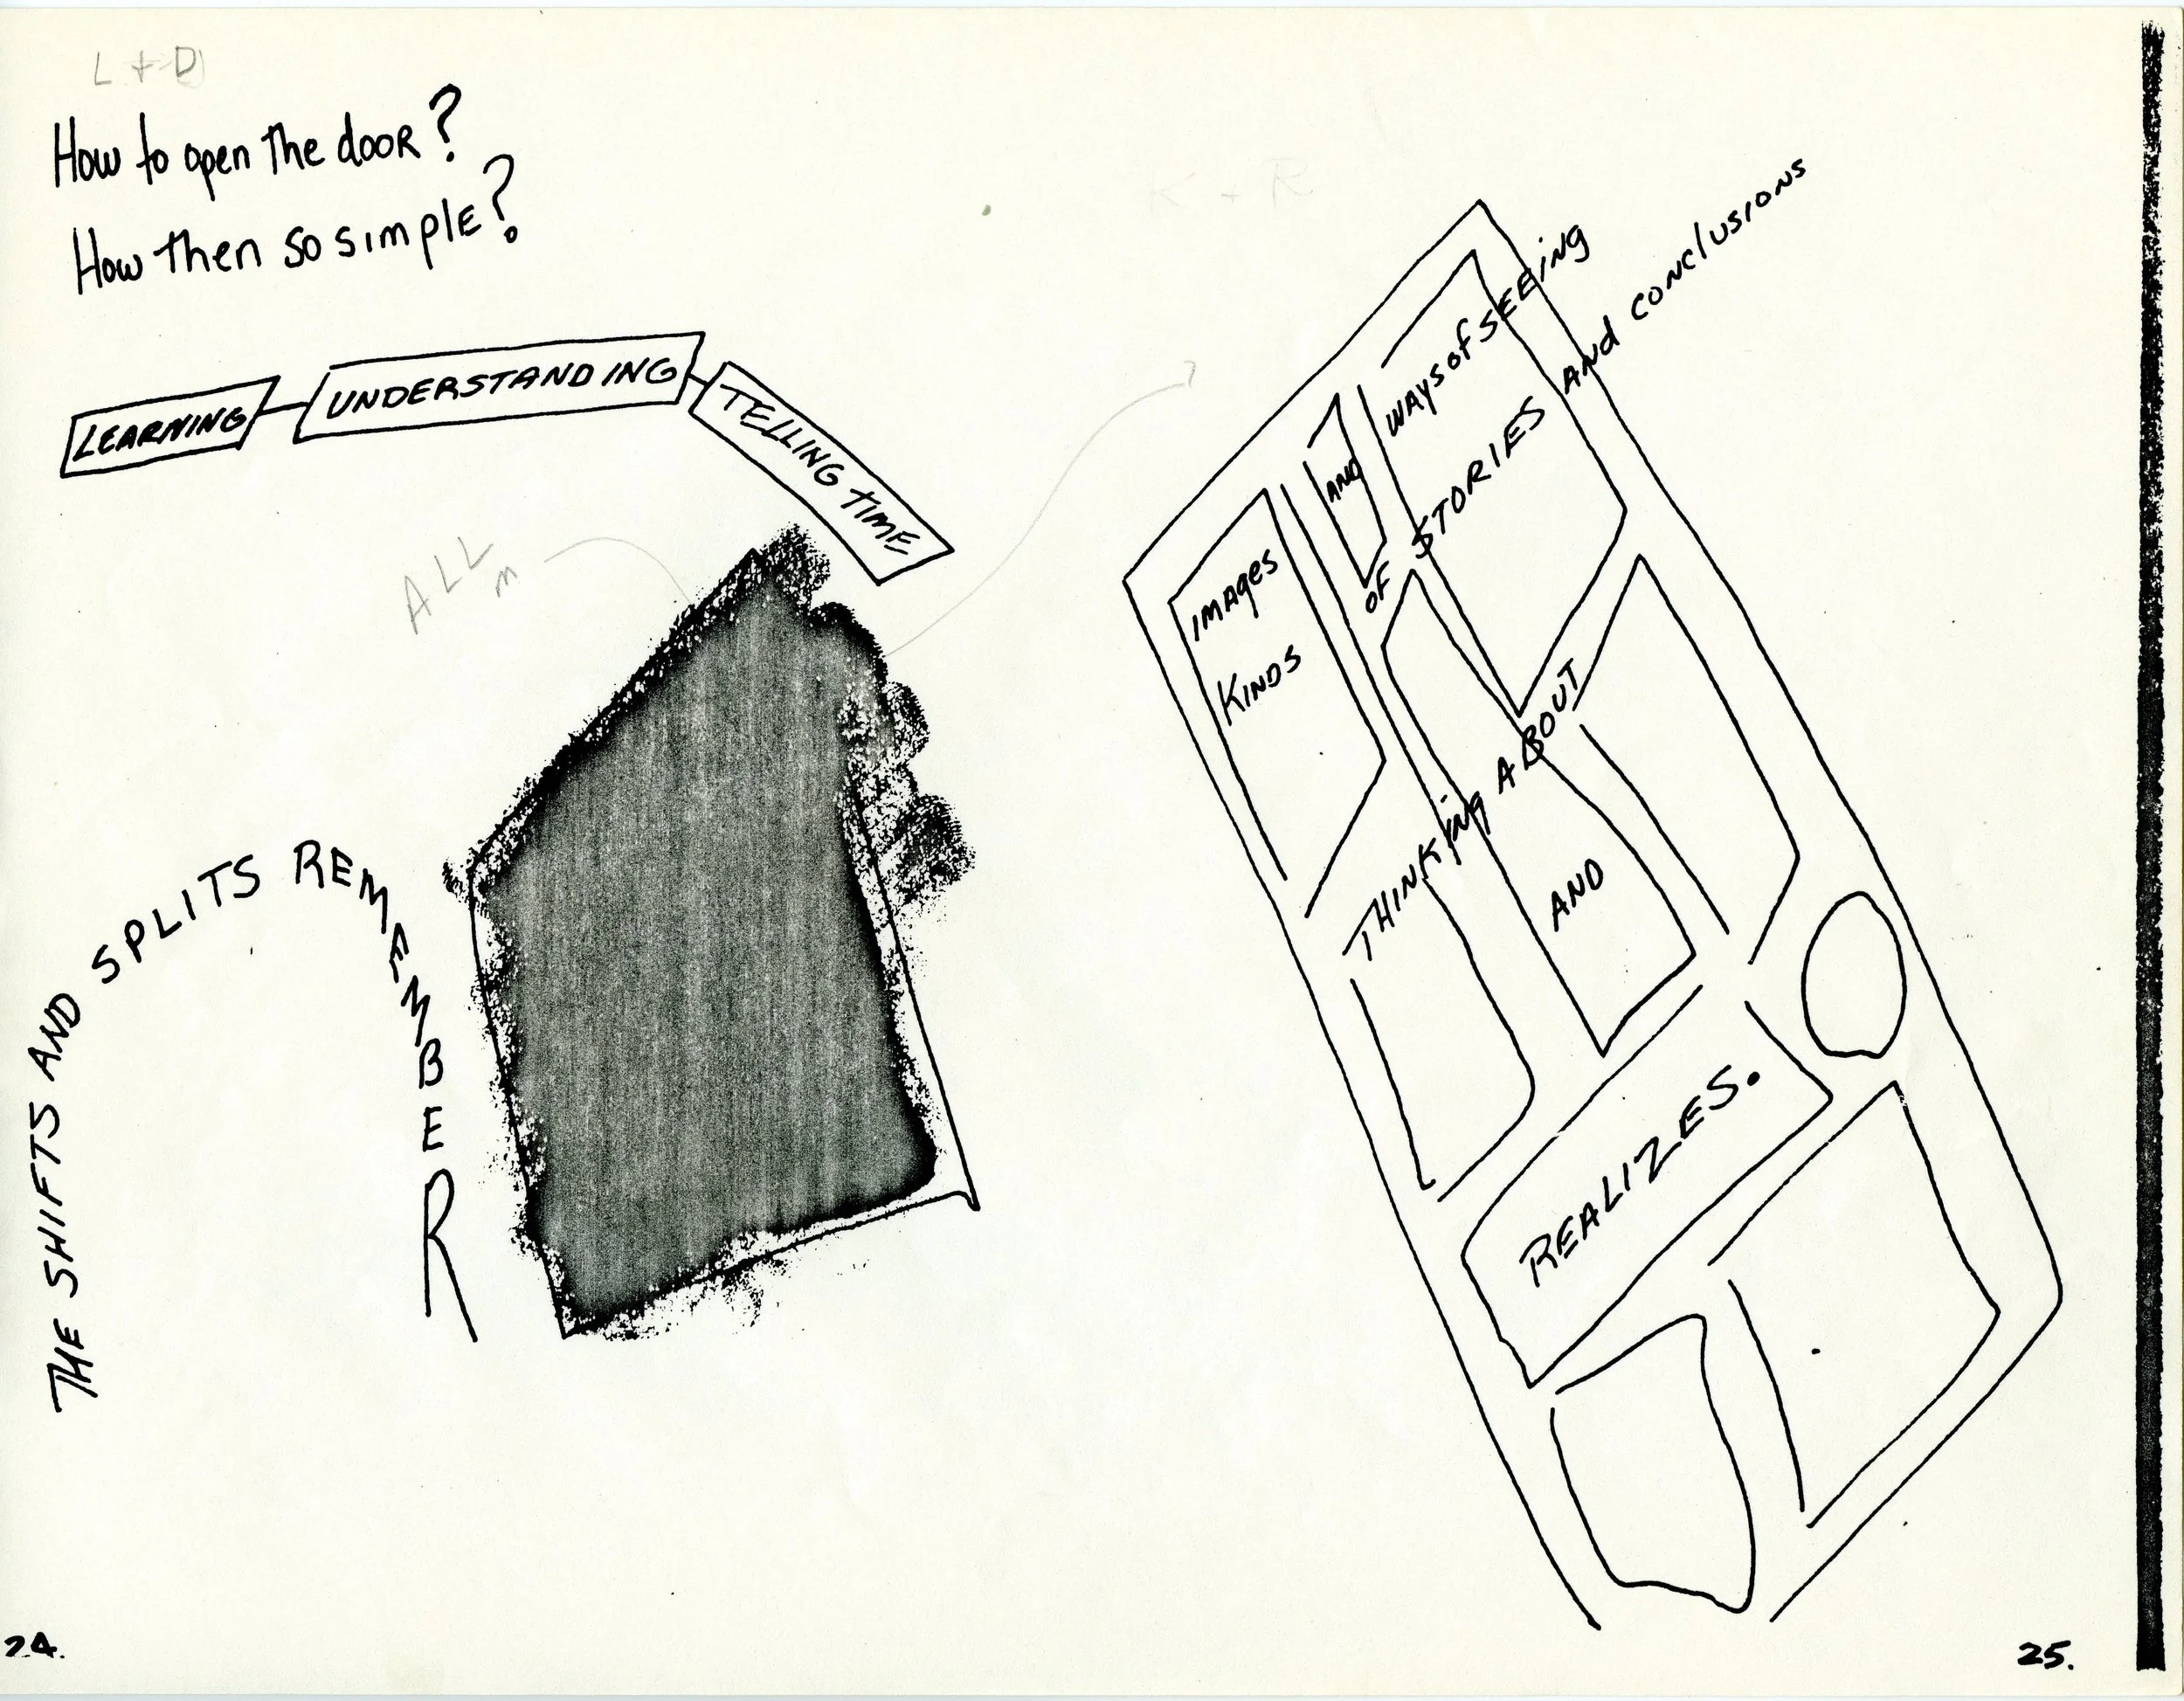 L + D
How to open the door?
How then so simple?
LEARNING UNDERSTANDING TELLING TIME
ALL
THE SHIFTS AND SPLITS REMAMBER
24.
K + R
IMAGES AND WAYS OF SEEING
KINDS OF STORIES AND CONCLUSIONS
THINKING ABOUT
AND
REALIZES.
25.